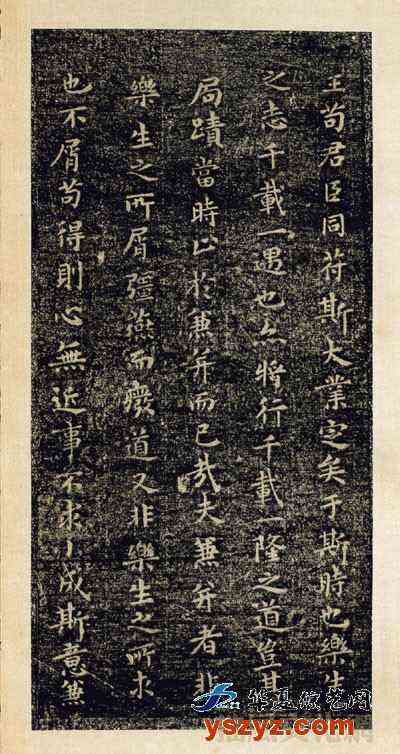 王苟君臣同符斯大業定矣于斯時也樂生
之志千載一遇也亦將行千載一隆之道豈其
局蹟當時止於兼并而已哉夫兼并者非
樂生之所屑彊燕而廢道又非樂生之所求
也不屑苟得則心無近事不求小成斯意兼
华夏收艺网
yszyz.com